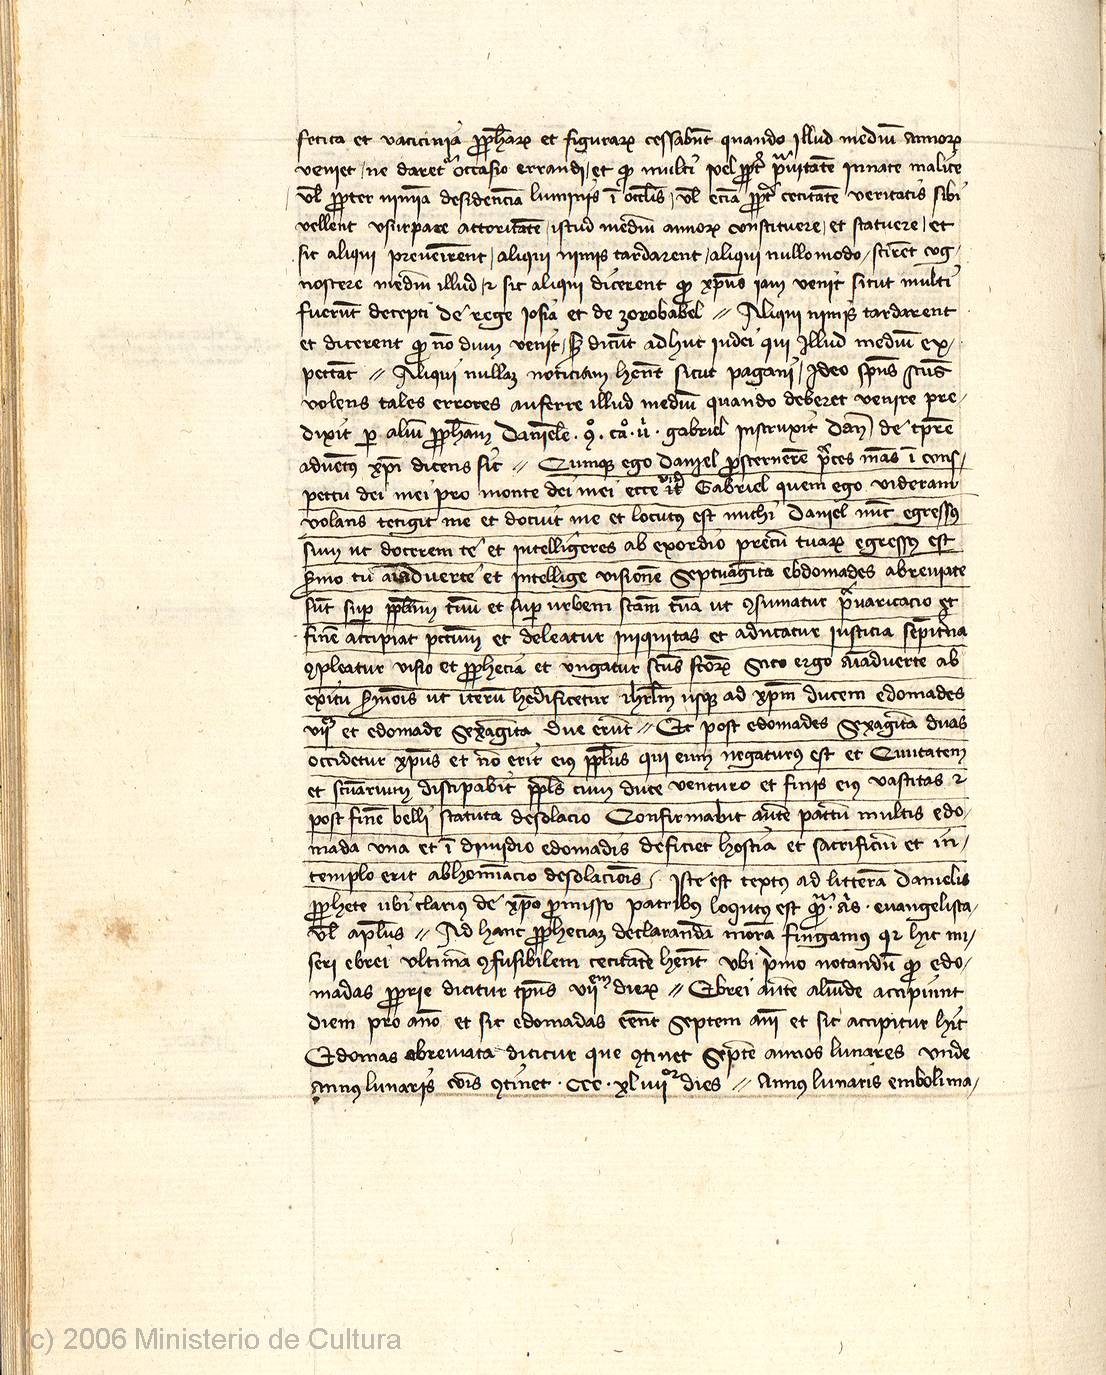 fetica et vaticinia ꝓph̄aꝝ et figuraꝝ cessabūt quando illud mediū annoꝝ
veniet / ne daret᷑ occasio errandi / et ꝙ multi vel ꝓpt̄ p̄uitatē innate malicie
vl̄ ꝓpter nimiā desidenciā luminis ī occl̄is / vl̄ eciā ꝓpt̄ cecitatē veritatis sibi
vellent vsurpare attoritatē / istud mediū annoꝝ constituere / et statuere / et
sic aliqui prevenirent / aliqui nimis tardarent / aliqui nullomodo / scirēt cog-
noscere mediū illud / ⁊ sic aliqui dicerent ꝙ xp̄us iam venit sicut multi
fuerūt decepti de rege iosia et de zorobabel // Aliqui nimis tardarent
et dicerent ꝙ nō dum venit / dicūt ad huc iudei qui illud mediū ex-
pectāt // Aliqui nullaꝫ noticiam hēnt sicut pagani / Ideo sp̄us sc̄us
volens tales errores auferre illud mediū quando deberet venire pre-
dixit ꝑ aliū ꝓph̄am Daniele . 9º . cā . gabriel instruxit Dan̄ de tp̄re
aduētus xp̄i dicens sic // Cumqꝫ ego Daniel ꝓsternerē p̄ces mēas ī cons-
pectu dei mei pro monte dei mei ecce Gabriel quem ego videram
volans tetigit me et docuit me et locutꝰ est michi Daniel nūc egressꝰ
sum ut docerem te et intelligeres ab exordio precū tuaꝝ egressꝰ est
s̄mo tu aīaduerte et intellige visionē Septuagīta ebdomades abreviate
sūt suꝑ ppl̄m tuū et suꝑ urbem sc̄am tuā ut ꝯsumatur p̄uaricacio et
finē accipiat pcc̄um et deleatur iniquitas et aducatur iusticia sempit̄na
ꝯpleatur visio et ꝓphecia et ungatur sc̄us sc̄oꝝ Scito ergo aīaduerte ab
exitu s̄mōis ut iterū hedificetur ihrl̄m usqꝫ ad xp̄m ducem edomades
vij et edomade sexagīta due erūt // Et post edomades sexagīta duas
occidetur xp̄us et nō erit eiꝰ ppl̄us qui eum negaturꝰ est et Ciuitatem
et sc̄uarium discipabit ppl̄s cum duce venturo et finis eiꝰ vastitas ⁊
post finē belli statuta desolacio Confirmabit autē pactū multis edo-
mada una et ī dimidio edomadis deficiet hostia et sacrificiū et in-
templo erit abhominacio desolacionis / Iste est textꝰ ad litterā Danielis
ꝓphete ubi clariꝰ de xp̄o ꝓmisso patribꝰ loqutꝰ est evangelista /
vl̄ apl̄us // Ad hanc ꝓpheciaꝫ declarandā morā fingamꝰ qꝛ hic mi-
seri ebrei vltimā ꝯfusibilem cecitatē hēnt vbi p̄mo notandū ꝙ edo-
madas ꝓprie dicitur tp̄us vijem dieꝝ // Ebrei autē aliūde accipiunt
diem pro āno et sic edomadas eēnt septem āni et sic accipitur hic
Edomas abreviata dicitur que ꝯtinet Septē annos lunares vnde
annꝰ lunaris cōis ꝯtinet . CCC . xl iiijor dies // Annꝰ lunaris embolima-
(c) 2006 Ministerio de Cultura